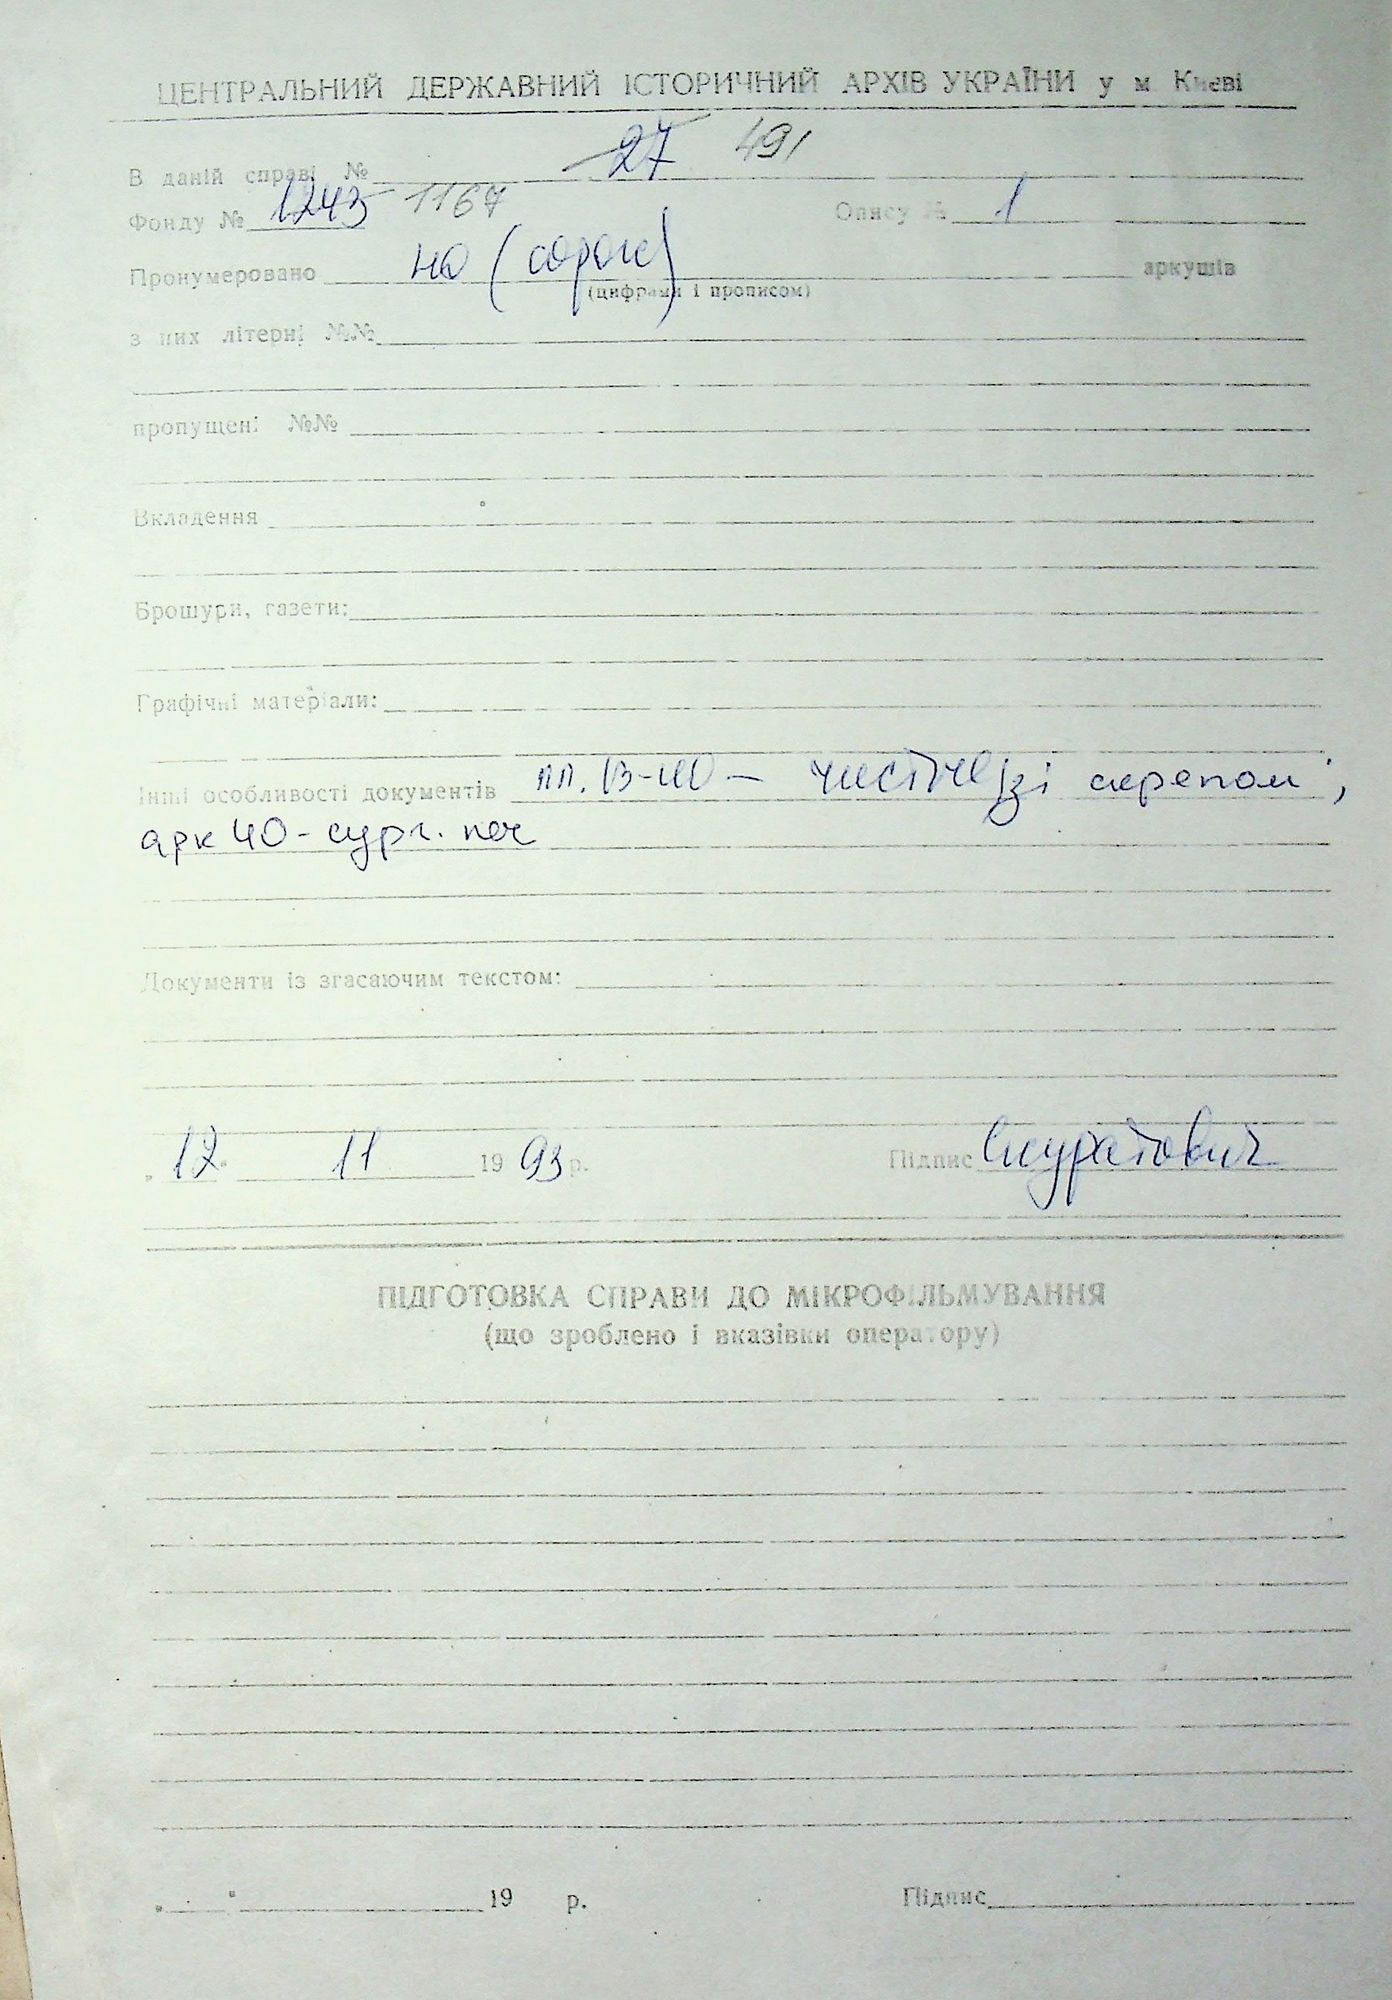 ЦЕНТРАЛЬНИЙ ДЕРЖАВНИЙ ІСТОРИЧНИЙ АРХІВ УКРАЇНИ у м Києві
В даній справі № 27 491
Фонду № 1243 1167 Опису № 1
Пронумеровано 40 (сорок) аркушів
(цифрами і прописом)
з них літерні №№
пропущені №№
Вкладення
Брошури, газети:
Графічні матеріали:
Інші особливості документів 13-40 — скрепом;
арк 40 - сург. печ
Документи із згасаючим текстом:
„12" 11 1993 р. Підпис Скуратович
ПІДГОТОВКА СПРАВИ ДО МІКРОФІЛЬМУВАННЯ
(що зроблено і вказівки оператору)
„ " 19 р. Підпис